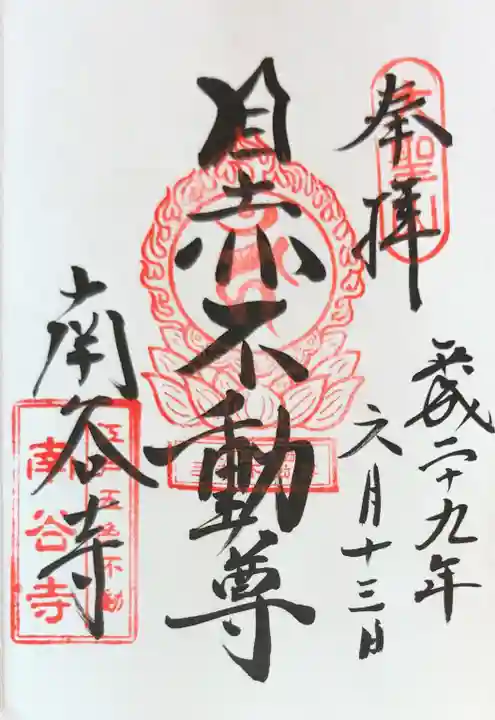 奉拝
平成二十九年
六月十三日
目赤不動尊
南谷寺
江戸五色不動
南谷寺